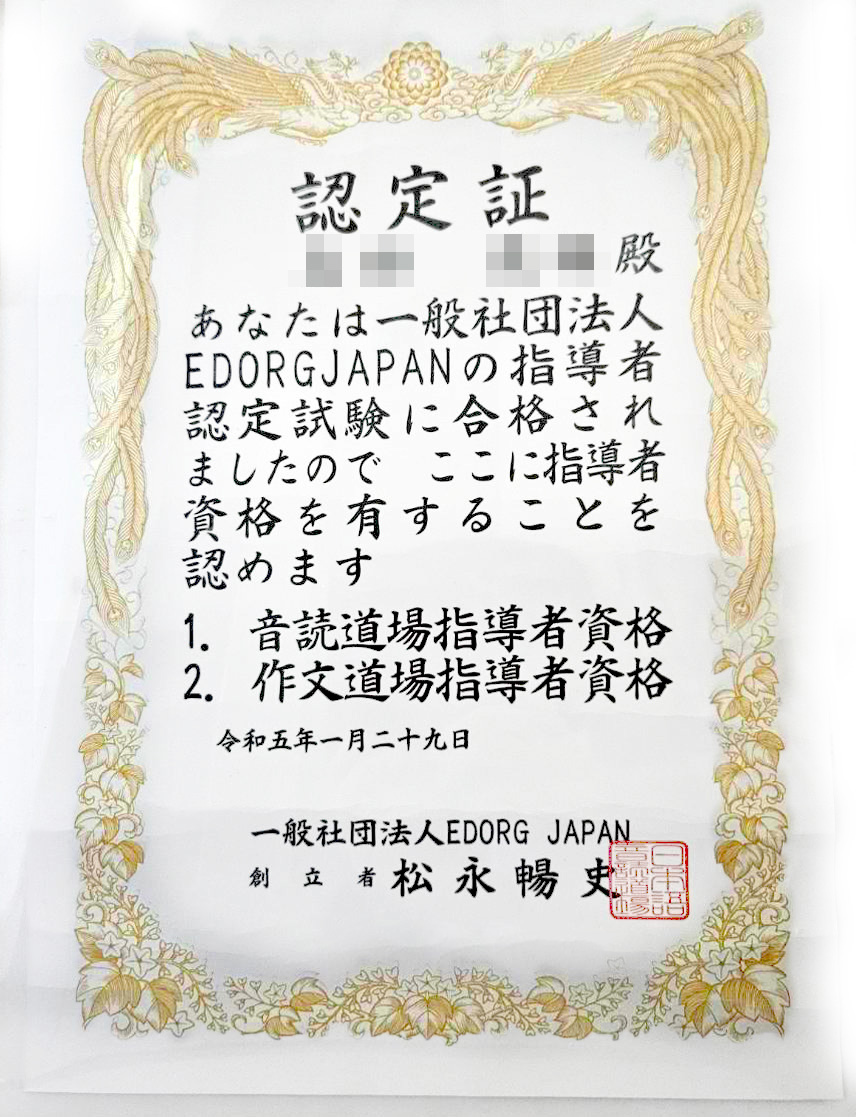 認定証
殿
あなたは一般社団法人
EDORGJAPANの指導者
認定試験に合格され
ましたので ここに指導者
資格を有することを
認めます
1. 音読道場指導者資格
2. 作文道場指導者資格
令和五年一月二十九日
一般社団法人EDORG JAPAN
創立者 松永暢史
日本語
音読道場